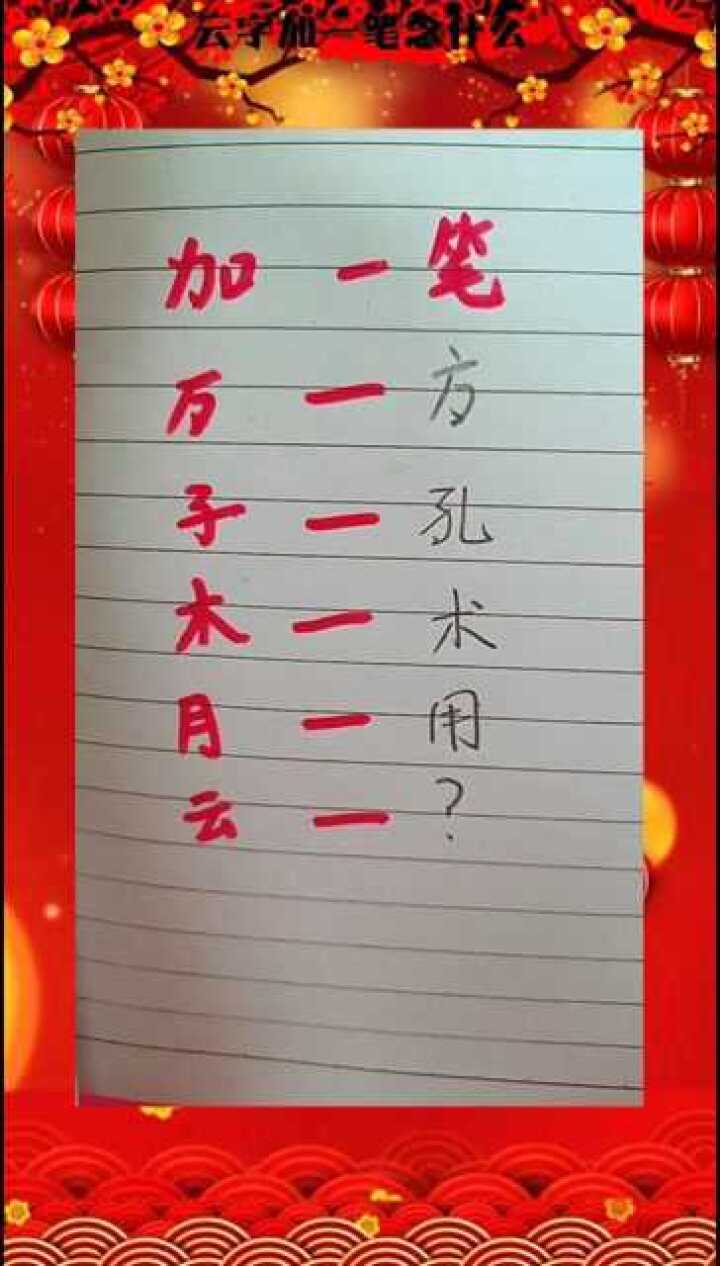 云字加一笔念什么
加 一 笔
万 — 方
子 — 孔
木 — 术
月 — 用
云 — ?